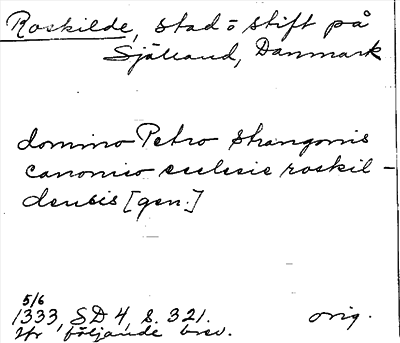 Roskilde, stad o stift på
Själland, Danmark
domino Petro Strangonis
canonico ecclesie roskil-
densis [gen.]
5/6
1333, SD 4, s. 321. orig.
Ur följande brev.